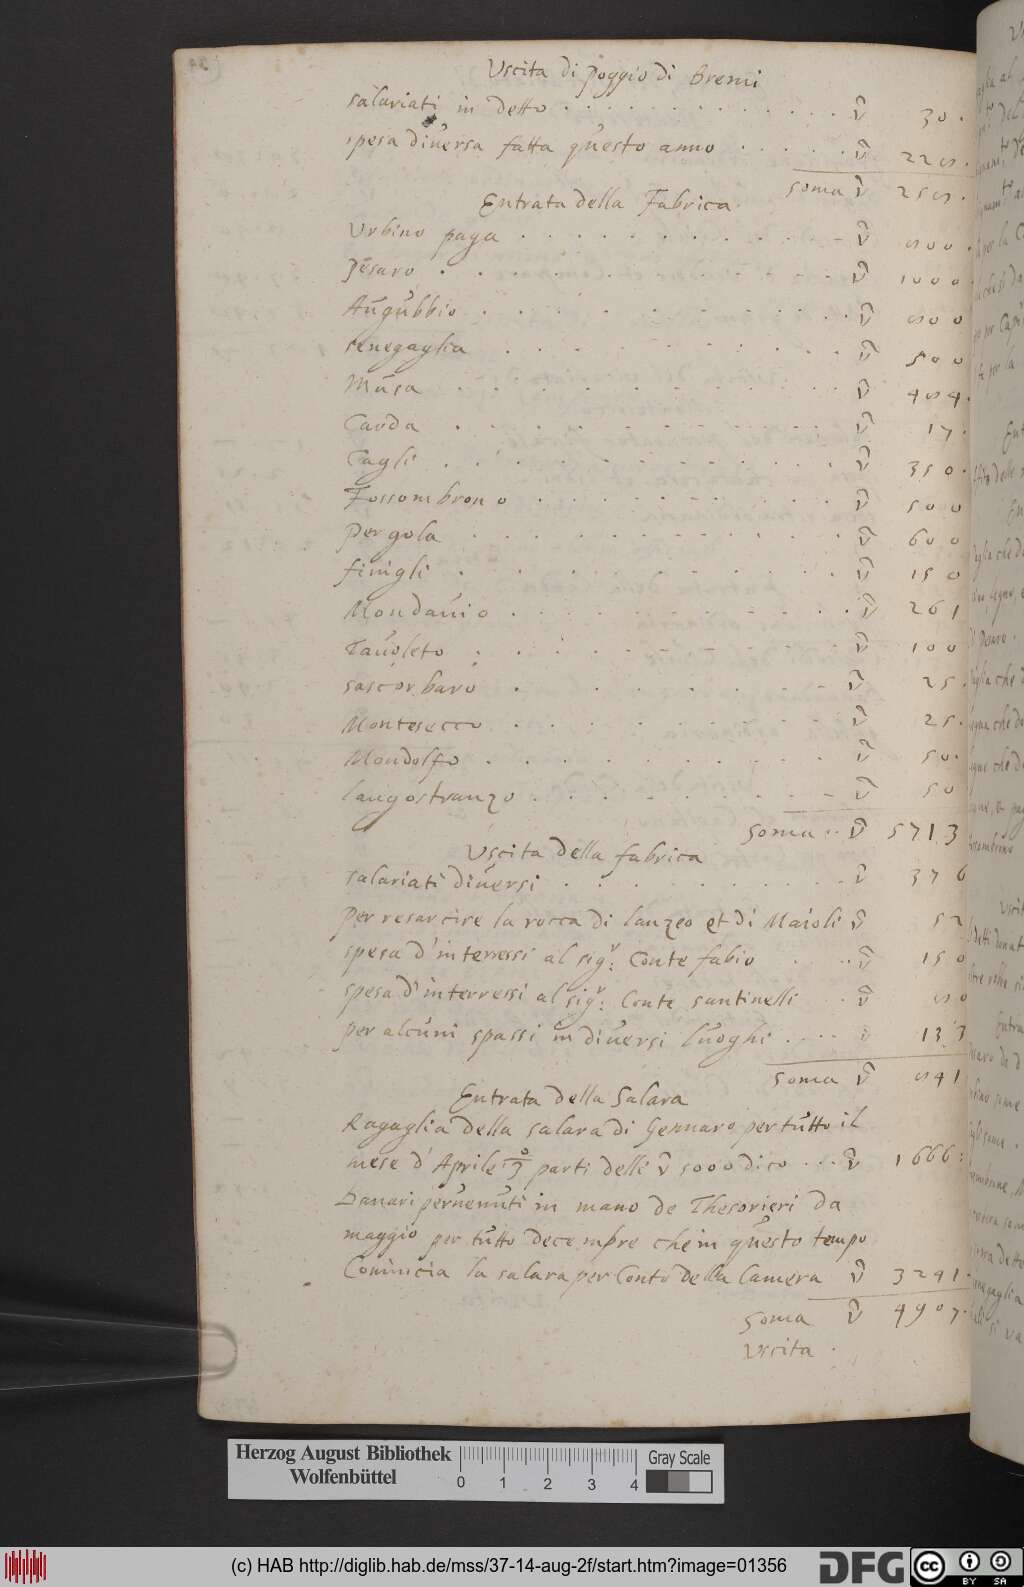 Vscita di poggio di Bremi
salariati in detto . . . . . . . . . . . v 30.
spesa diuersa fatta questo anno . . . . . v 225.
soma v 255.
Entrata della Fabrica
Vrbino paga . . . . . . . . . . v 500.
Pesaro . . . . . . . . . . v 1000.
Augubbio . . . . . . . . . . v 500
senegaglia . . . . . . . . . . v 500
Musa . . . . . . . . . . v 454.
Carda . . . . . . . . . . v 17.
Cagli . . . . . . . . . . v 350.
Fossombrono . . . . . . . . . v 500
Pergola . . . . . . . . . . v 600
finigli . . . . . . . . . . v 150
Mondauio . . . . . . . . . . v 261
Tauoleto . . . . . . . . . . v 100
sascorbaro . . . . . . . . v 25.
Montesecco . . . . . . . . . v 25.
Mondolfo . . . . . . . . . . v 50.
langostranzo . . . . . . . . v 50
soma .. v 5713
Vscita della fabrica
salariati diuersi . . . . . . . . v 376
per resarcire la rocca di lanzeo et di Maioli v 52
spesa d'interressi al sigr: Conte fabio . . . v 150
spesa d'interressi al sigr: Conte santinelli . . v 50
per alcuni spassi in diuersi luoghi . . . . v 13.3
soma v 941
Entrata della Salara
Ragaglia della salara di Gennaro per tutto il
mese d'Aprile parti delli v 5000 dico . . . v 1666:
Danari peruenuti in mano de Thesorieri da
maggio per tutto decembre che in questo tempo
Comincia la salara per Conto della Camera v 3241.
soma v 4907.
Vscita .
Herzog August Bibliothek
Wolfenbüttel
0 1 2 3 4
Gray Scale
(c) HAB http://diglib.hab.de/mss/37-14-aug-2f/start.htm?image=01356
DFG
cc BY SA